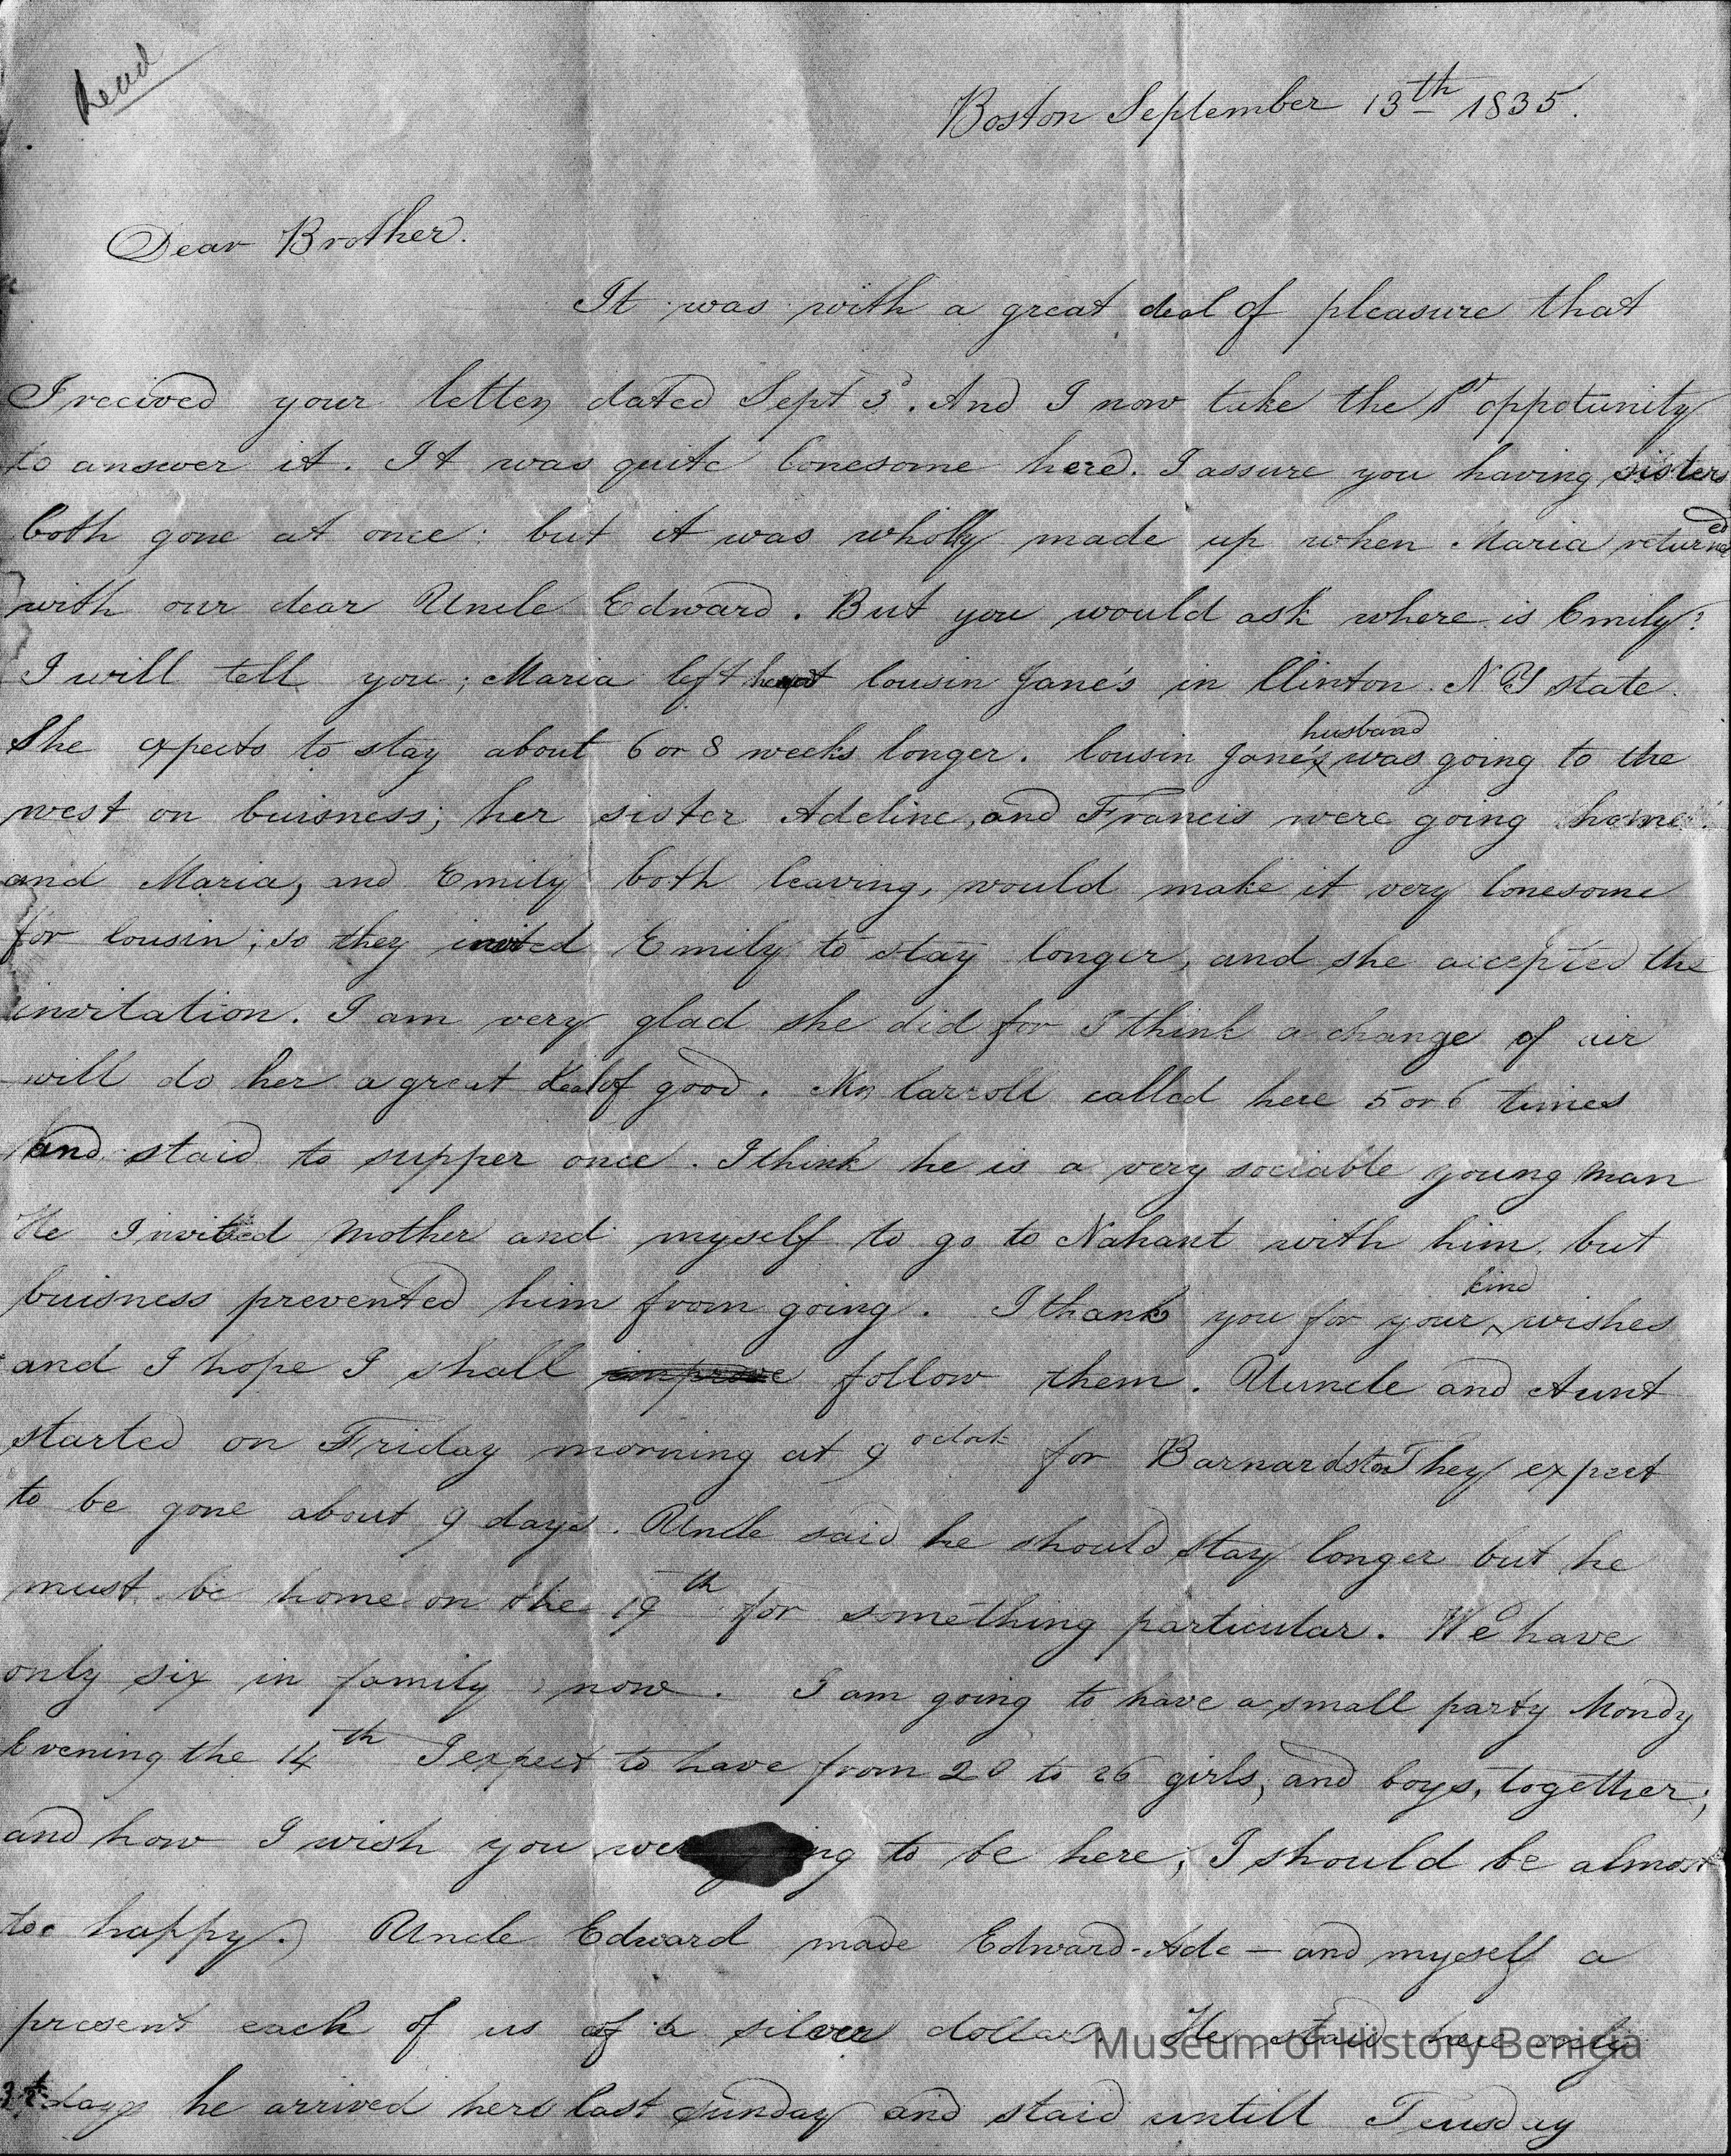 Read
Boston September 13th 1835.
Dear Brother.
It was with a great deal of pleasure that
I recived your letter, dated Sept 3d. And I now take the 1st oppotunity
to answer it. It was quite lonesome here. I assure you having sisters
both gone at once; but it was wholly made up when Maria returned
with our dear Uncle Edward. But you would ask where is Emily?
I will tell you; Maria left her at Cousin Jane's in Clinton. N Y state.
She expects to stay about 6 or 8 weeks longer. Cousin Jane's husband was going to the
west on buisness; her sister Adeline, and Francis were going home.
and Maria, and Emily both leaving, would make it very lonesome
for Cousin; so they invited Emily to stay longer, and she accepted the
invitation. I am very glad she did for I think a change of air
will do her a great deal of good. Mr Carroll called here 5 or 6 times
and staid to supper once. I think he is a very sociable young man
He Invited Mother and myself to go to Nahant with him, but
buisness prevented him from going. I thank you for your kind wishes
and I hope I shall improve follow them. Uuncle and Aunt
started on Friday morning at 9 oclock for Barnardston They expect
to be gone about 9 days. Uncle said he should stay longer but he
must be home on the 19th for something particular. We have
only six in family now. I am going to have a small party Mondy
Evening the 14th I expect to have from 20 to 26 girls, and boys, together;
and how I wish you were ng to be here; I should be almost
too happy. Uncle Edward made Edward-Ade — and myself a
present each of us of a silver dollar. He staid here only
days he arrived here last Sunday and staid untill Teusday
Museum of History Benicia